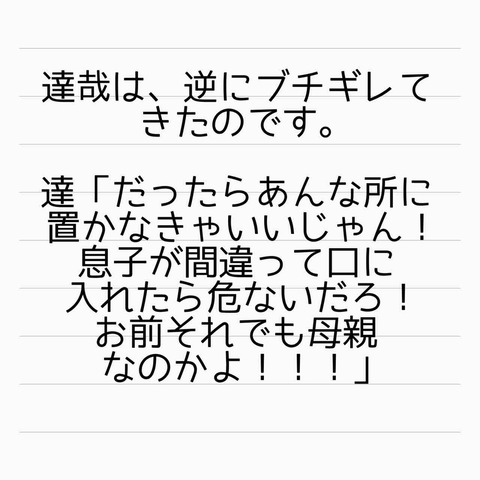 達哉は、逆にブチギレて
きたのです。
達「だったらあんな所に
置かなきゃいいじゃん！
息子が間違って口に
入れたら危ないだろ！
お前それでも母親
なのかよ！！！」